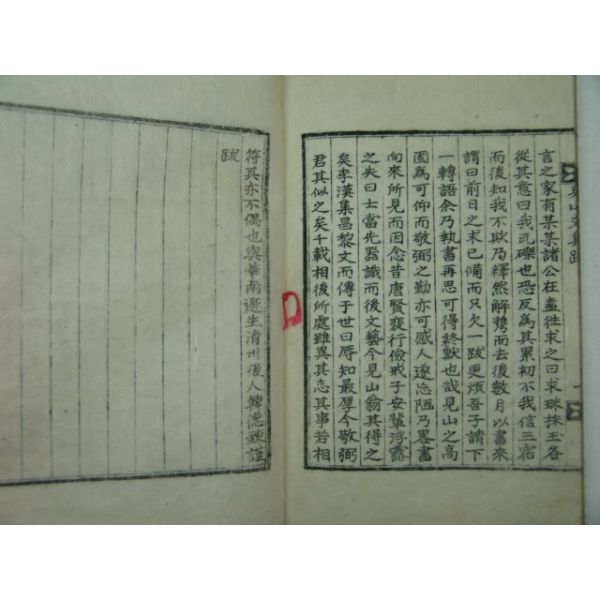 言之家有某某諸公在盍徃求之曰求珠抹玉各
從其意曰我瓦礫也恐反為其累初不我信三宿
而後知我不欺乃釋然解携而去後數月以書來
謂曰前日之求已備而只欠一跋更煩吾子請下
一轉語余乃執書再思可得終默也哉見山之高
固為可仰而敬弼之勤亦可感人遂忘陋乃畧書
向來所見而因念昔唐賢裵行儉戒子安輩浮露
之失曰士當先器識而後文藝今見山翁其得之
矣李漢集昌黎文而傳于世曰辱知最厚今敬弼
君其似之矣千載相後所處雖異其志其事若相
符其亦不偶也與華南遯生清州後人韓悳鍊謹
跋
見山文集跋